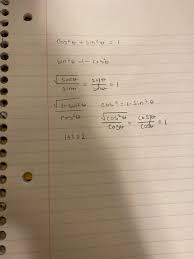 cos²θ + sin²θ = 1
sin²θ = 1 - cos²θ
√sin²θ / sinθ = sinθ / sinθ = 1
√1-sin²θ / cos²θ cos² = 1 - sin²θ
√cos²θ / cosθ = cosθ / cosθ = 1